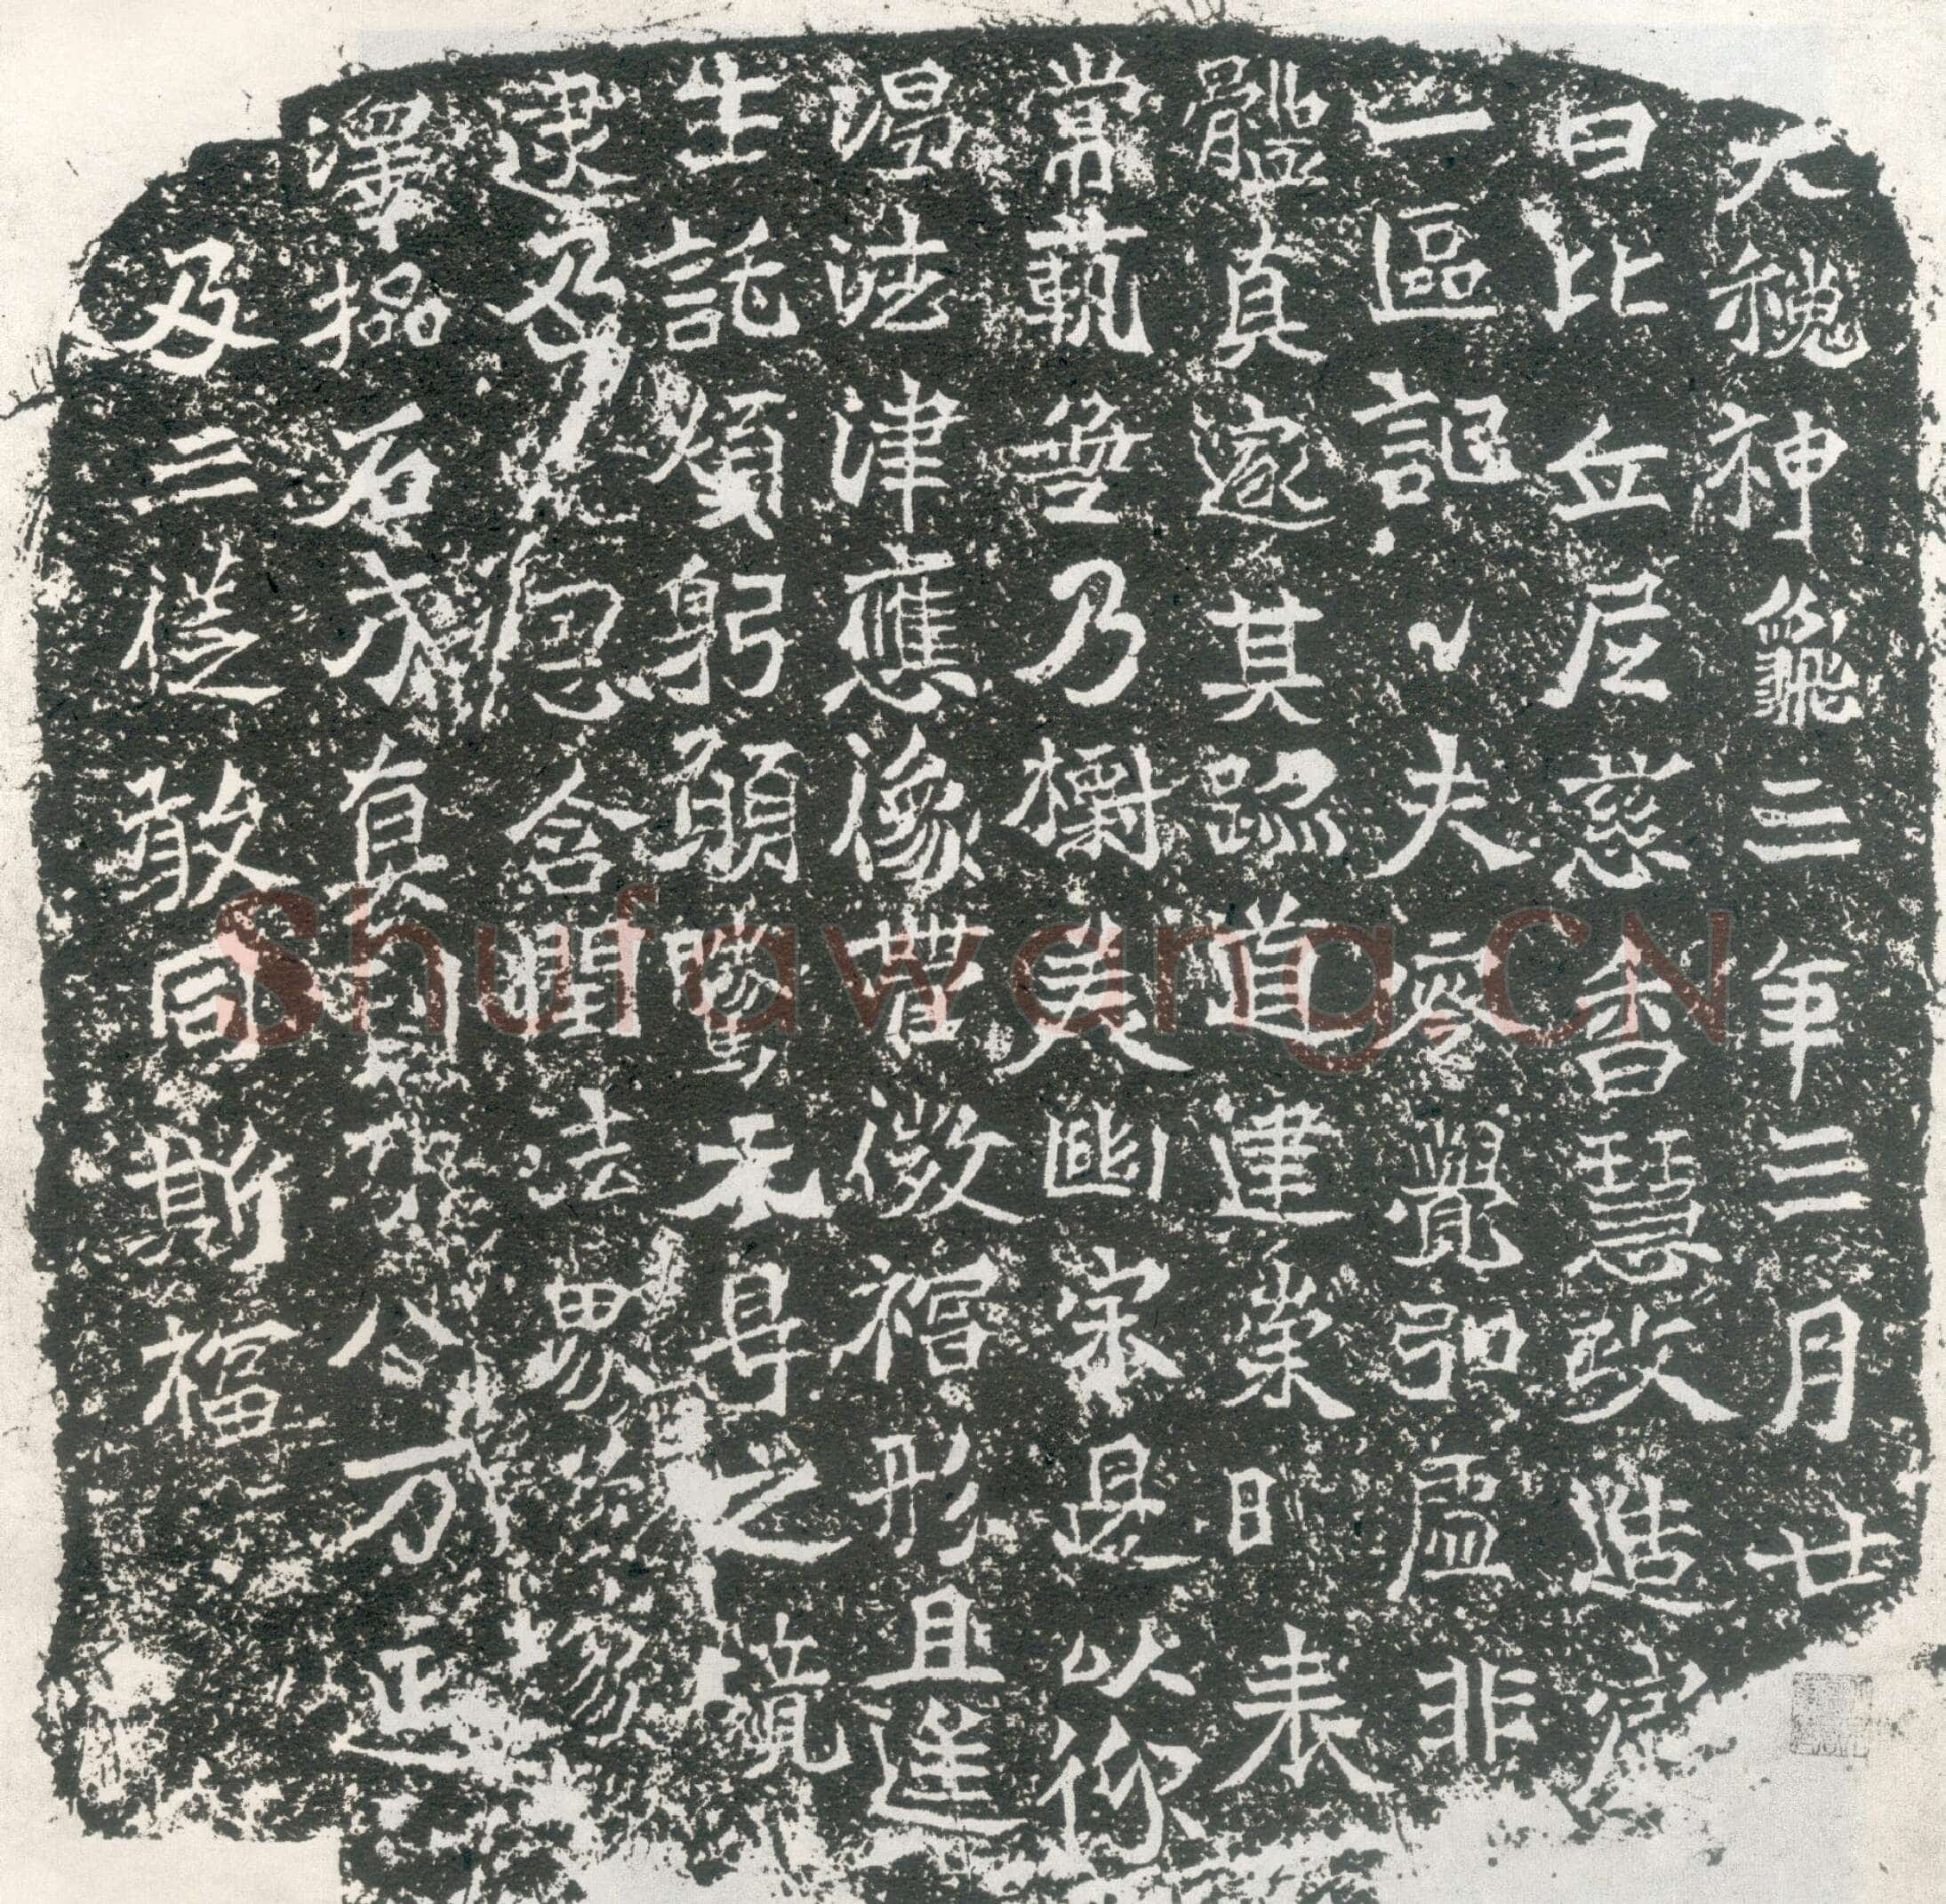 大魏神龜三年三月廿
日比丘尼慈香慧政造窟
一區記之夫零覺弘虛非
體真邃其跡道建崇日表
常軌無乃標美幽宗是以仰
渴法津應像營微福形且遙
生託煩躬願騰无㝵之境
逮及恩含潤法界
澤石成真八方延
及三從敢同斯福
Shufawang.CN